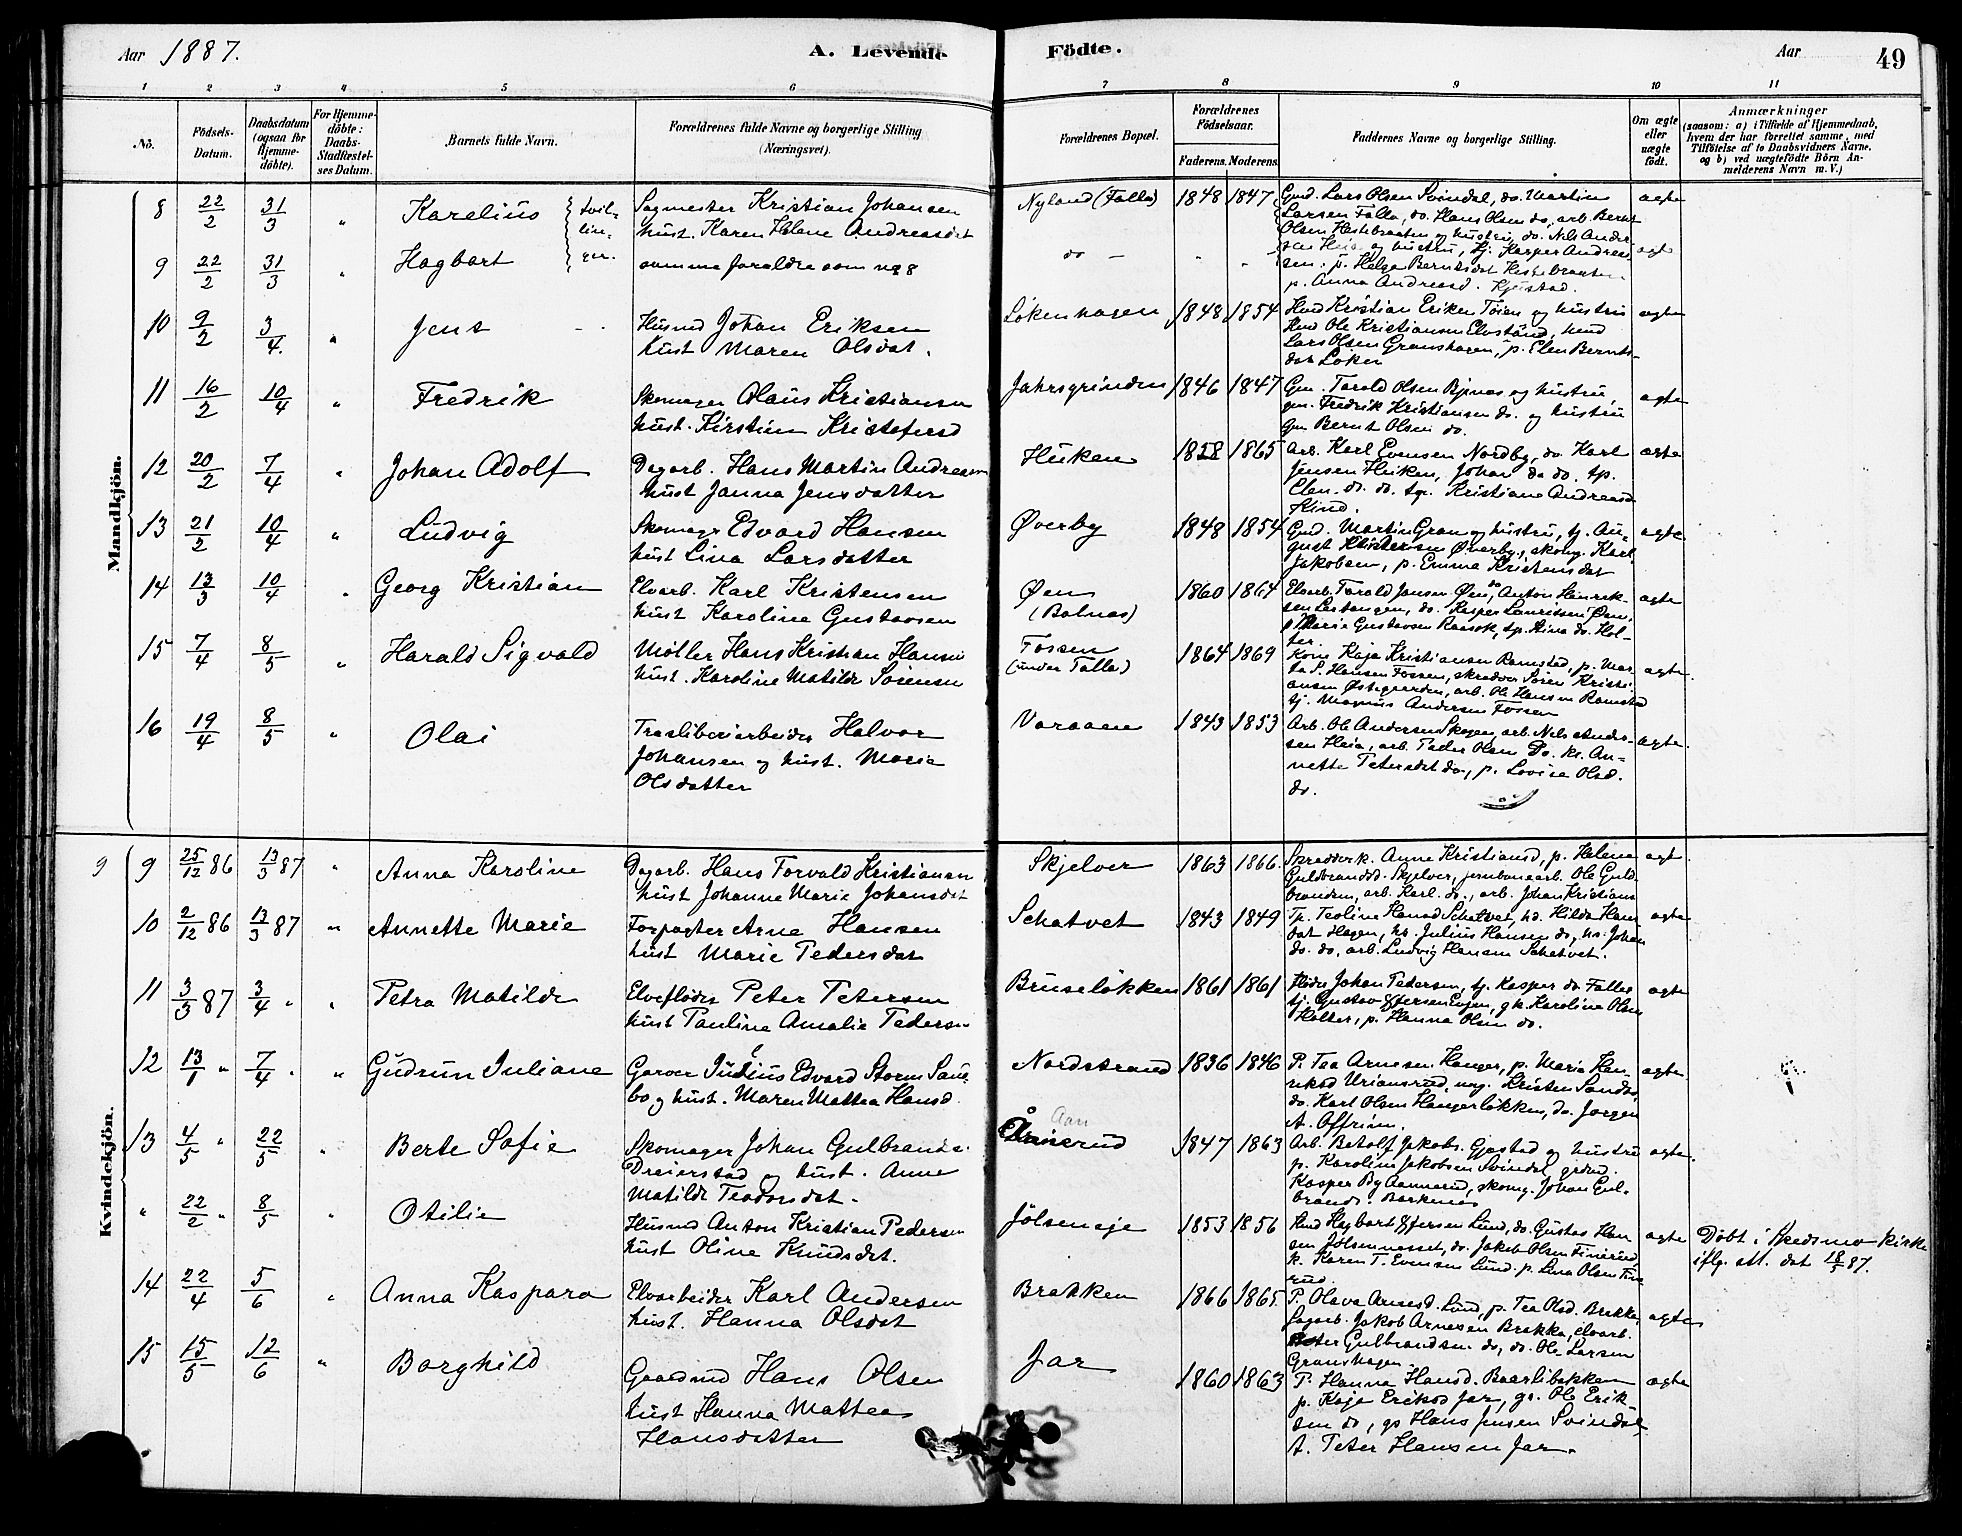 Aar 1887.
A. Levende
Födte.
Aar
49
1 2 3 4 5 6 7 8 9 10 11
No.
Födsels-Datum.
Daabsdatum (ogsaa for Hjemme-döbte).
For Hjemme-döbte: Daabs-Stadfæstel-ses Datum.
Barnets fulde Navn.
Forældrenes fulde Navne og borgerlige Stilling (Næringsvei).
Forældrenes Bopæl.
Forældrenes Födselsaar.
Faderens. Moderens.
Faddernes Navne og borgerlige Stilling.
Om ægte eller uægte födt.
Anmærkninger
(saasom: a) i Tilfælde af Hjemmedaab,
hvem der har forrettet samme, med
Tilföielse af to Daabsvidners Navne,
og b) ved uægtefödte Börn An-
melderens Navn m. V.)
Mandkjön.
8 22/2 31/3 " Karelius
tvil-
lin-
ger.
Sagmester Kristian Johansen
hust. Karen Helene Andreasdat
Nyland (Falla) 1848 1847
Gmd. Lars Olsen Svindal, do. Martin
Larsen Falla, do. Hans Olsen do, arb. Bernt
Olsen Hestebraaten og hustru, do. Nils Ander-
sen Heia og hustru, tj. Kasper Andrea-
sen. p. Helga Berntsdat Hestebraaten
p. Anna Andreasd. Kjustad.
ægte
9 22/2 31/3 " Hagbart
samme foraldre som no 8
do - " - " - ægte
10 9/2 3/4. " Jens
Husmd Johan Eriksen
hust Maren Olsdat.
Løkenhagen 1848 1854
Hmd Kristian Eriken Tøien og hustru
Hmd Ole Kristiansen Elvstand, hmd
Lars Olsen Granshagen, p. Elen Bernts-
dat Løken
ægte
11 16/2 10/4 " Fredrik
Skomager Olaus Kristiansen
hust. Kirstine Kristofersd
Jahrsgrinden 1846 1847
Gm. Torald Olsen Bjinas og hustru,
gm. Fredrik Kristiansen do. og hustru
gm Bernt Olsen do.
ægte
12 20/2 7/4 " Johan Adolf
Dagarb. Hans Martin Andreasen
hust Janna Jensdatter
Huken 1858 1865
Arb. Karl Evensen Nordby, do Karl
Jensen Huken, Johan do do. tp.
Elen do. do. tp. Kristiane Andreasd
Kind.
ægte
13 21/2 10/4 " Ludvig
Skomagr Edvard Hansen
hust Lina Larsdatter
Øverby 1848 1854
Gmd. Martin Gran og hustru, tj. Au-
gust Kristensen Øverby, skomg. Karl
Jakobsen, p. Emma Kristensdat
ægte
14 13/3 10/4 " Georg Kristian
Elvarb. Karl Kristensen
hust Karoline Gustavsen
Øen
(Bolnas)
1860 1864
Elvarb. Torald Jansen Øen, do Anton Henrik-
sen Lestangen, do. Kasper Lauritsen Øen,
p Marie Gustavsen Raasok, tp. Stina do. Hol-
ter
ægte
15 7/4 8/5 " Harald Sigvald
Møller Hans Kristian Hansen
hust. Karoline Matilde Sørensen
Fossen
(under Falla)
1864 1869
Kone Kaja Kristiansen Ramstad, p. Mar-
ta S. Hansen Fossen, skredder Søren Kristi-
ansen Østegaarden, arb. Ole Hansen Ramstad
tj. Magnus Andersen Fossen
ægte.
16 19/4 8/5 " Olai
Træsliberiarbeider Halvor
Johansen og hust. Marie
Olsdatter
Varaaen 1843 1853
Arb. Ole Andersen Skogen, arb. Nils Ander-
sen Heia, arb. Peder Olsen do. k. An-
nette Petersdat do, p. Lovise Olsd.
do.
ægte.
Kvindekjön.
9 9 25/12 86 13/3 87 " Anna Karoline
Dagarb. Hans Torvald Kristiansen
hust Johanne Marie Johansdat
Skjelver 1863 1866.
Skredderk. Anne Kristiansd, p. Helene
Gulbrandsd. Skjelver, jernbanearb. Ole Guld-
brandsen, arb. Karl. do, arb. Johan Kristians
ægt.
10 2/12 86 13/3 87 " Annette Marie
Forpagter Arne Hansen
hust Marie Pedersdat
Schatvet 1843 1849
Tp. Teoline Hansd Schatvet, hd. Hilda Hans
dat Hagen, hs. Julius Hansen do, hs. Johan
do. do, arb. Ludvig Hansen Schatvet.
ægte
11 3/3 87 3/4 " " Petra Matilde
Elvefløder Peter Petersen
hust Pauline Amalie Pedersen
Bruseløkken 1861 1861
Fløder Johan Pedersen, tj. Kasper do Falla
tj. Gustav Efersen Evjen, gk. Karoline Olsen
Holter, p. Hanna Olsen do.
ægte
12 13/1 " 7/4 " " Gudrun Juliane
Garver Julius Edvard Storm Sand-
bo g hust. Maren Mattea Hansd.
Nordstrand 1836 1846
P. Tea Arnesen Hanger, p. Maria Hen-
riksd Uriansrud, ung. Kristen Sandbo,
do. Karl Olsen Hangerløkken, do. Jørgen
A. Affrim.
ægte.
13 4/5 " 22/5 " Berte Sofie
Skomager Johan Gulbrands.
Dreierstad og hust. Anne
Matilde Teodorsdat.
Aan
Ånnerud 1847 1863
Arb. Betolf Jakobs. Gjestad og hustru
p. Karoline Jakobsen Svindal, grdmd.
Kasper By Aannerud, skomg. Johan Gul-
brands. Barkenes
ægte.
" 22/2 " 8/5 " Otilie
Husmd Anton Kristian Pedersen
hust Oline Knudsdat.
Jølseneje 1853 1856
Hmd Hagbart Efersen Lund, do. Gustav Han
sen Jølsennesset, do. Jakob Olsen Finerud,
k. Karen T. Evensen Lund. p. Lina Olsen Fine
rud.
ægte
Døbt i Skedsmo kirke
iflg. att. dat 18/5 87.
14 22/4 5/6 " Anna Kaspara
Elvarbeider Karl Andersen
hust. Hanna Olsdat
Brakken 1866 1865.
P. Olava Arnesd. Lund, p. Tea Olsd. Brekka,
Dagarb. Jakob Arnesen Brekka, elvarb.
Peter Gulbrandsen do, do. Ole Larsen
Granshagen.
ægte
15 15/5 12/6 " Borghild
Gaardmd Hans Olsen
hust Hanna Mattea
Hansdatter
Jar 1860 1863
P. Hanna Hansd. Baarlibakken
p. Kaja Eriksd Jar, gs. Ole Erik-
sen do, gs Hans Jensen Svindal,
A. Peter Hansen Jar.
ægte